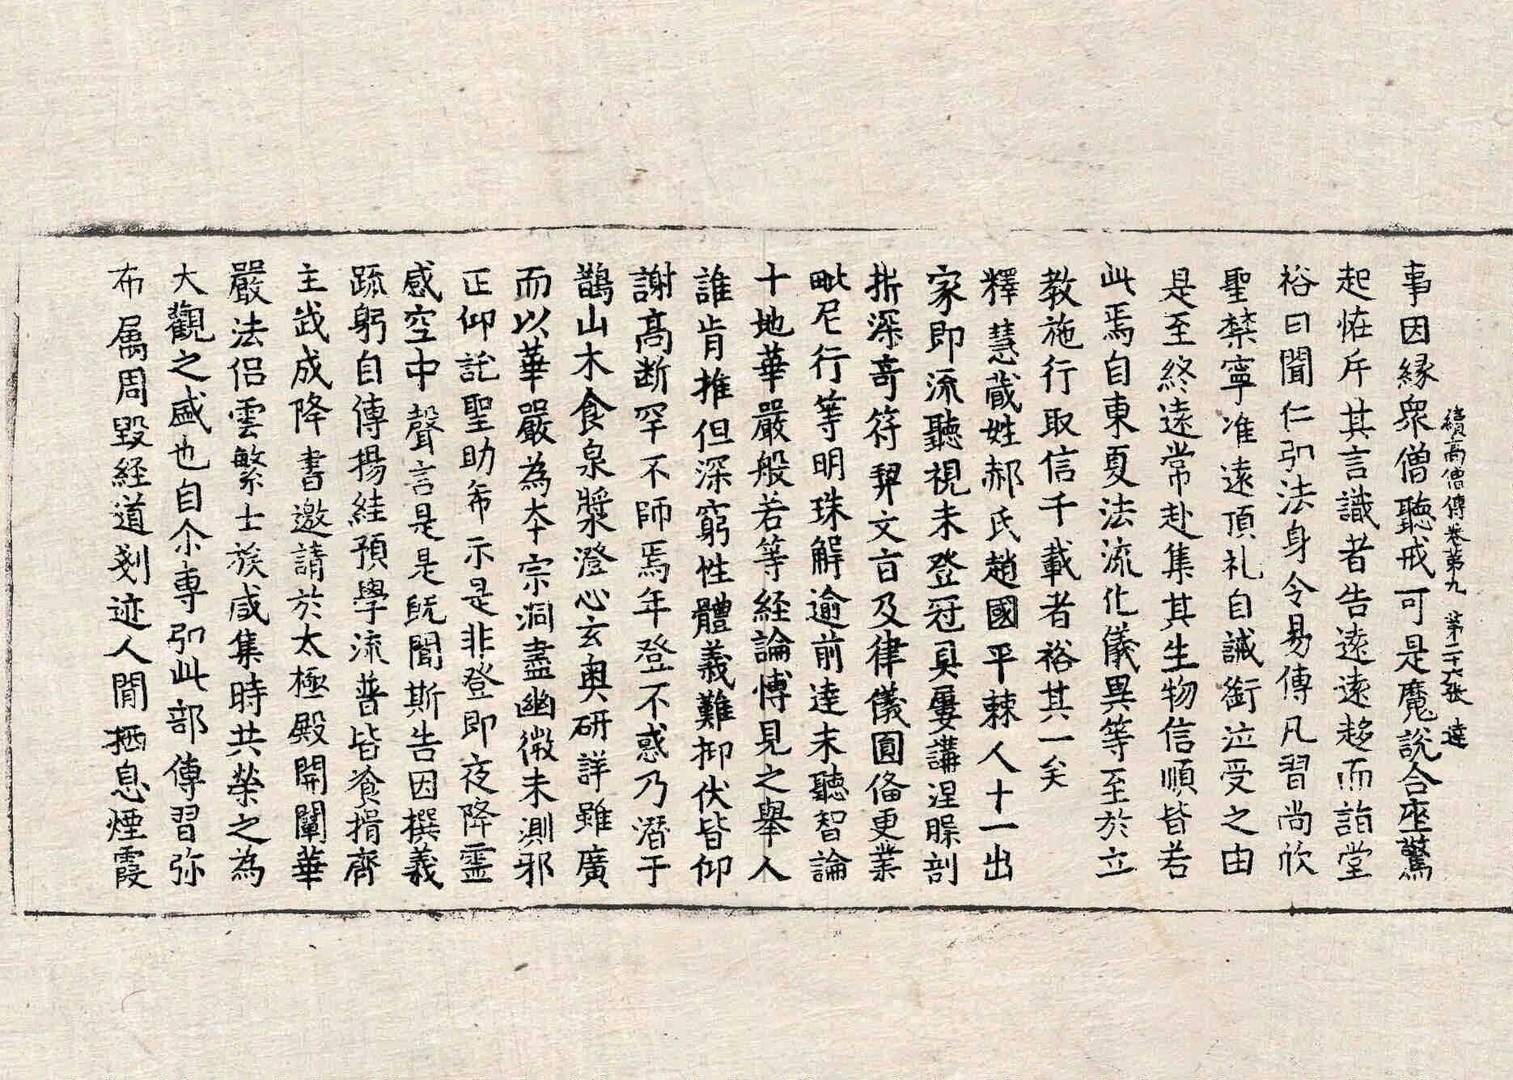 續高僧傳卷第九 第二十六張 達
事因緣衆僧聽戒可是魔說合座驚
起恠斥其言識者告遠遠趍而詣堂
裕曰聞仁弘法身令易傳凡習尚欣
聖禁寧准遠頂礼自誡銜泣受之由
是至終遠常赴集其生物信順皆若
此焉自東夏法流化儀異等至於立
教施行取信千載者裕其一矣
釋慧藏姓郝氏趙國平棘人十一出
家即流聽視未登冠具屢講涅槃剖
指深奇符契文言及律儀圓俻更業
毗尼行等明珠解逾前達末聽智論
十地華嚴般若等經論博見之舉人
誰肯推但深窮性體義難抑伏皆仰
謝高斷罕不師焉年登不惑乃潛于
鵲山木食泉漿澄心玄奧研詳雖廣
而以華嚴為夲宗洞盡幽微未測邪
正仰託聖助希示是非登即夜降霊
感空中聲言是是既聞斯告因撰義
䟽躬自傳揚絓預學流普皆飡揖齊
主武成降書邀請於太極殿開闡華
嚴法侶雲繁士族咸集時共榮之為
大觀之盛也自尒專弘此部傳習弥
布属周毀経道剗迹人間栖息煙霞